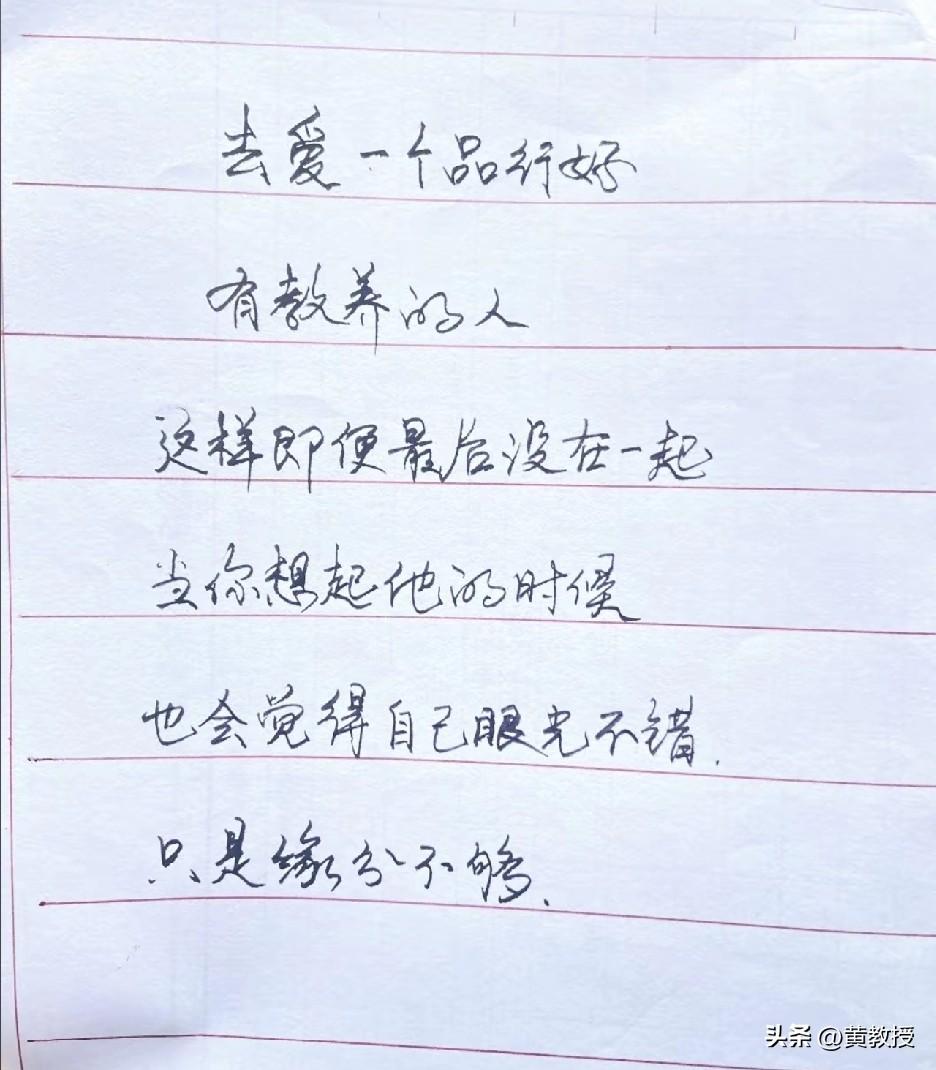 去爱一个品行好
有教养的人
这样即便最后没在一起
当你想起他的时候
也会觉得自己眼光不错.
只是缘分不够.
头条 @黄教授